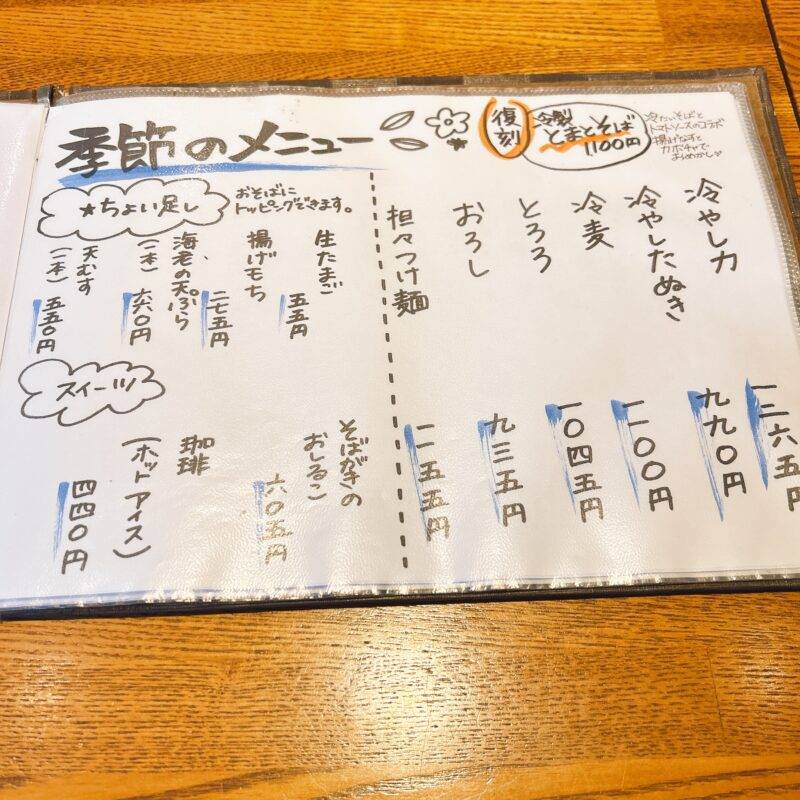 季節のメニュー
復刻
冷製
とまとそば
1100円
冷たいそばと
トマトソースのコラボ
揚げなすと
カボチャで
おめかし♡
冷やし力
一三六五円
冷やしたぬき
九九〇円
冷麦
一一〇〇円
とろろ
一〇四五円
おろし
九三五円
担々つけ麺
一一五五円
★ちょい足し
おそばに
トッピングできます。
生たまご
五五円
揚げもち
二七五円
海老の天ぷら
(一本)
六六〇円
天むす
(一本)
五五〇円
スイーツ
そばがきの
おしるこ
六〇五円
珈琲
(ホットアイス)
四四〇円